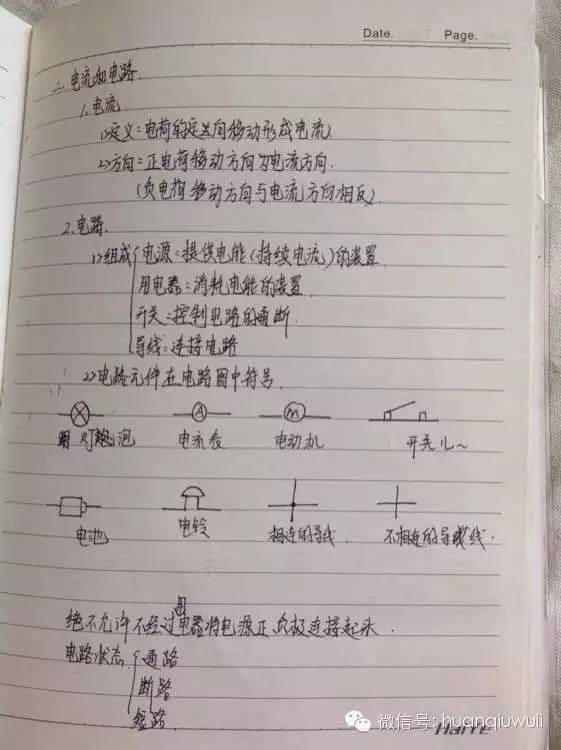 Date. Page.
二、电流和电路.
1.电流
1>定义:电荷的定义向移动形成电流
2>方向:正电荷移动方向为电流方向.
(负电荷移动方向与电流方向相反)
2.电路.
1>组成{电源:提供电能(持续电流)的装置
用电器:消耗电能的装置.
开关:控制电路的通断.
导线:连接电路
2>电路元件在电路图中符号.
A M
灯泡 电流表 电动机 开关儿~
电池 电铃 相连的导线. 不相连的导线.
绝不允许不经过用电器将电源正.负极连接起来.
电路状态{通路
断路
短路.
微信号: huanqiuwuli